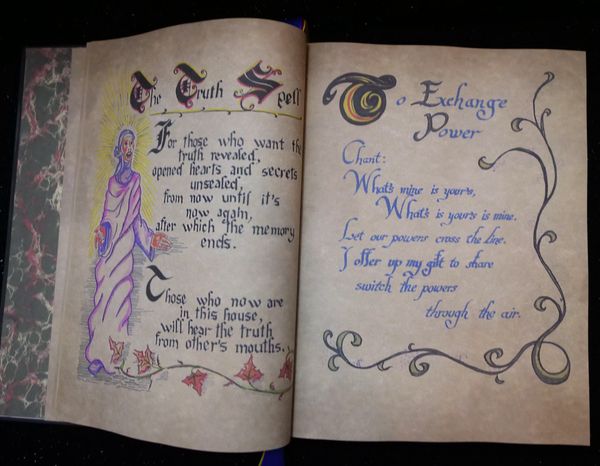 The Truth Spell
For those who want the
truth revealed,
opened hearts and secrets
unsealed,
from now until it's
now again,
after which the memory
ends.
Those who now are
in this house,
will hear the truth
from other's mouths.
To Exchange
Power
Chant:
What's mine is your's,
What's is your's is mine.
Let our powers cross the line.
I offer up my gift to share
switch the powers
through the air.